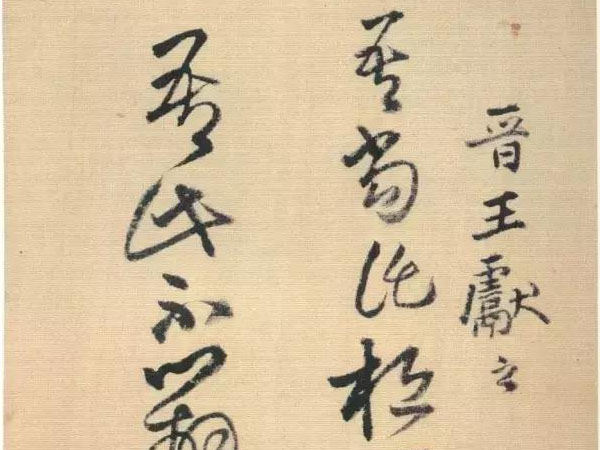 晉王獻之
吾當託桓
吾此不